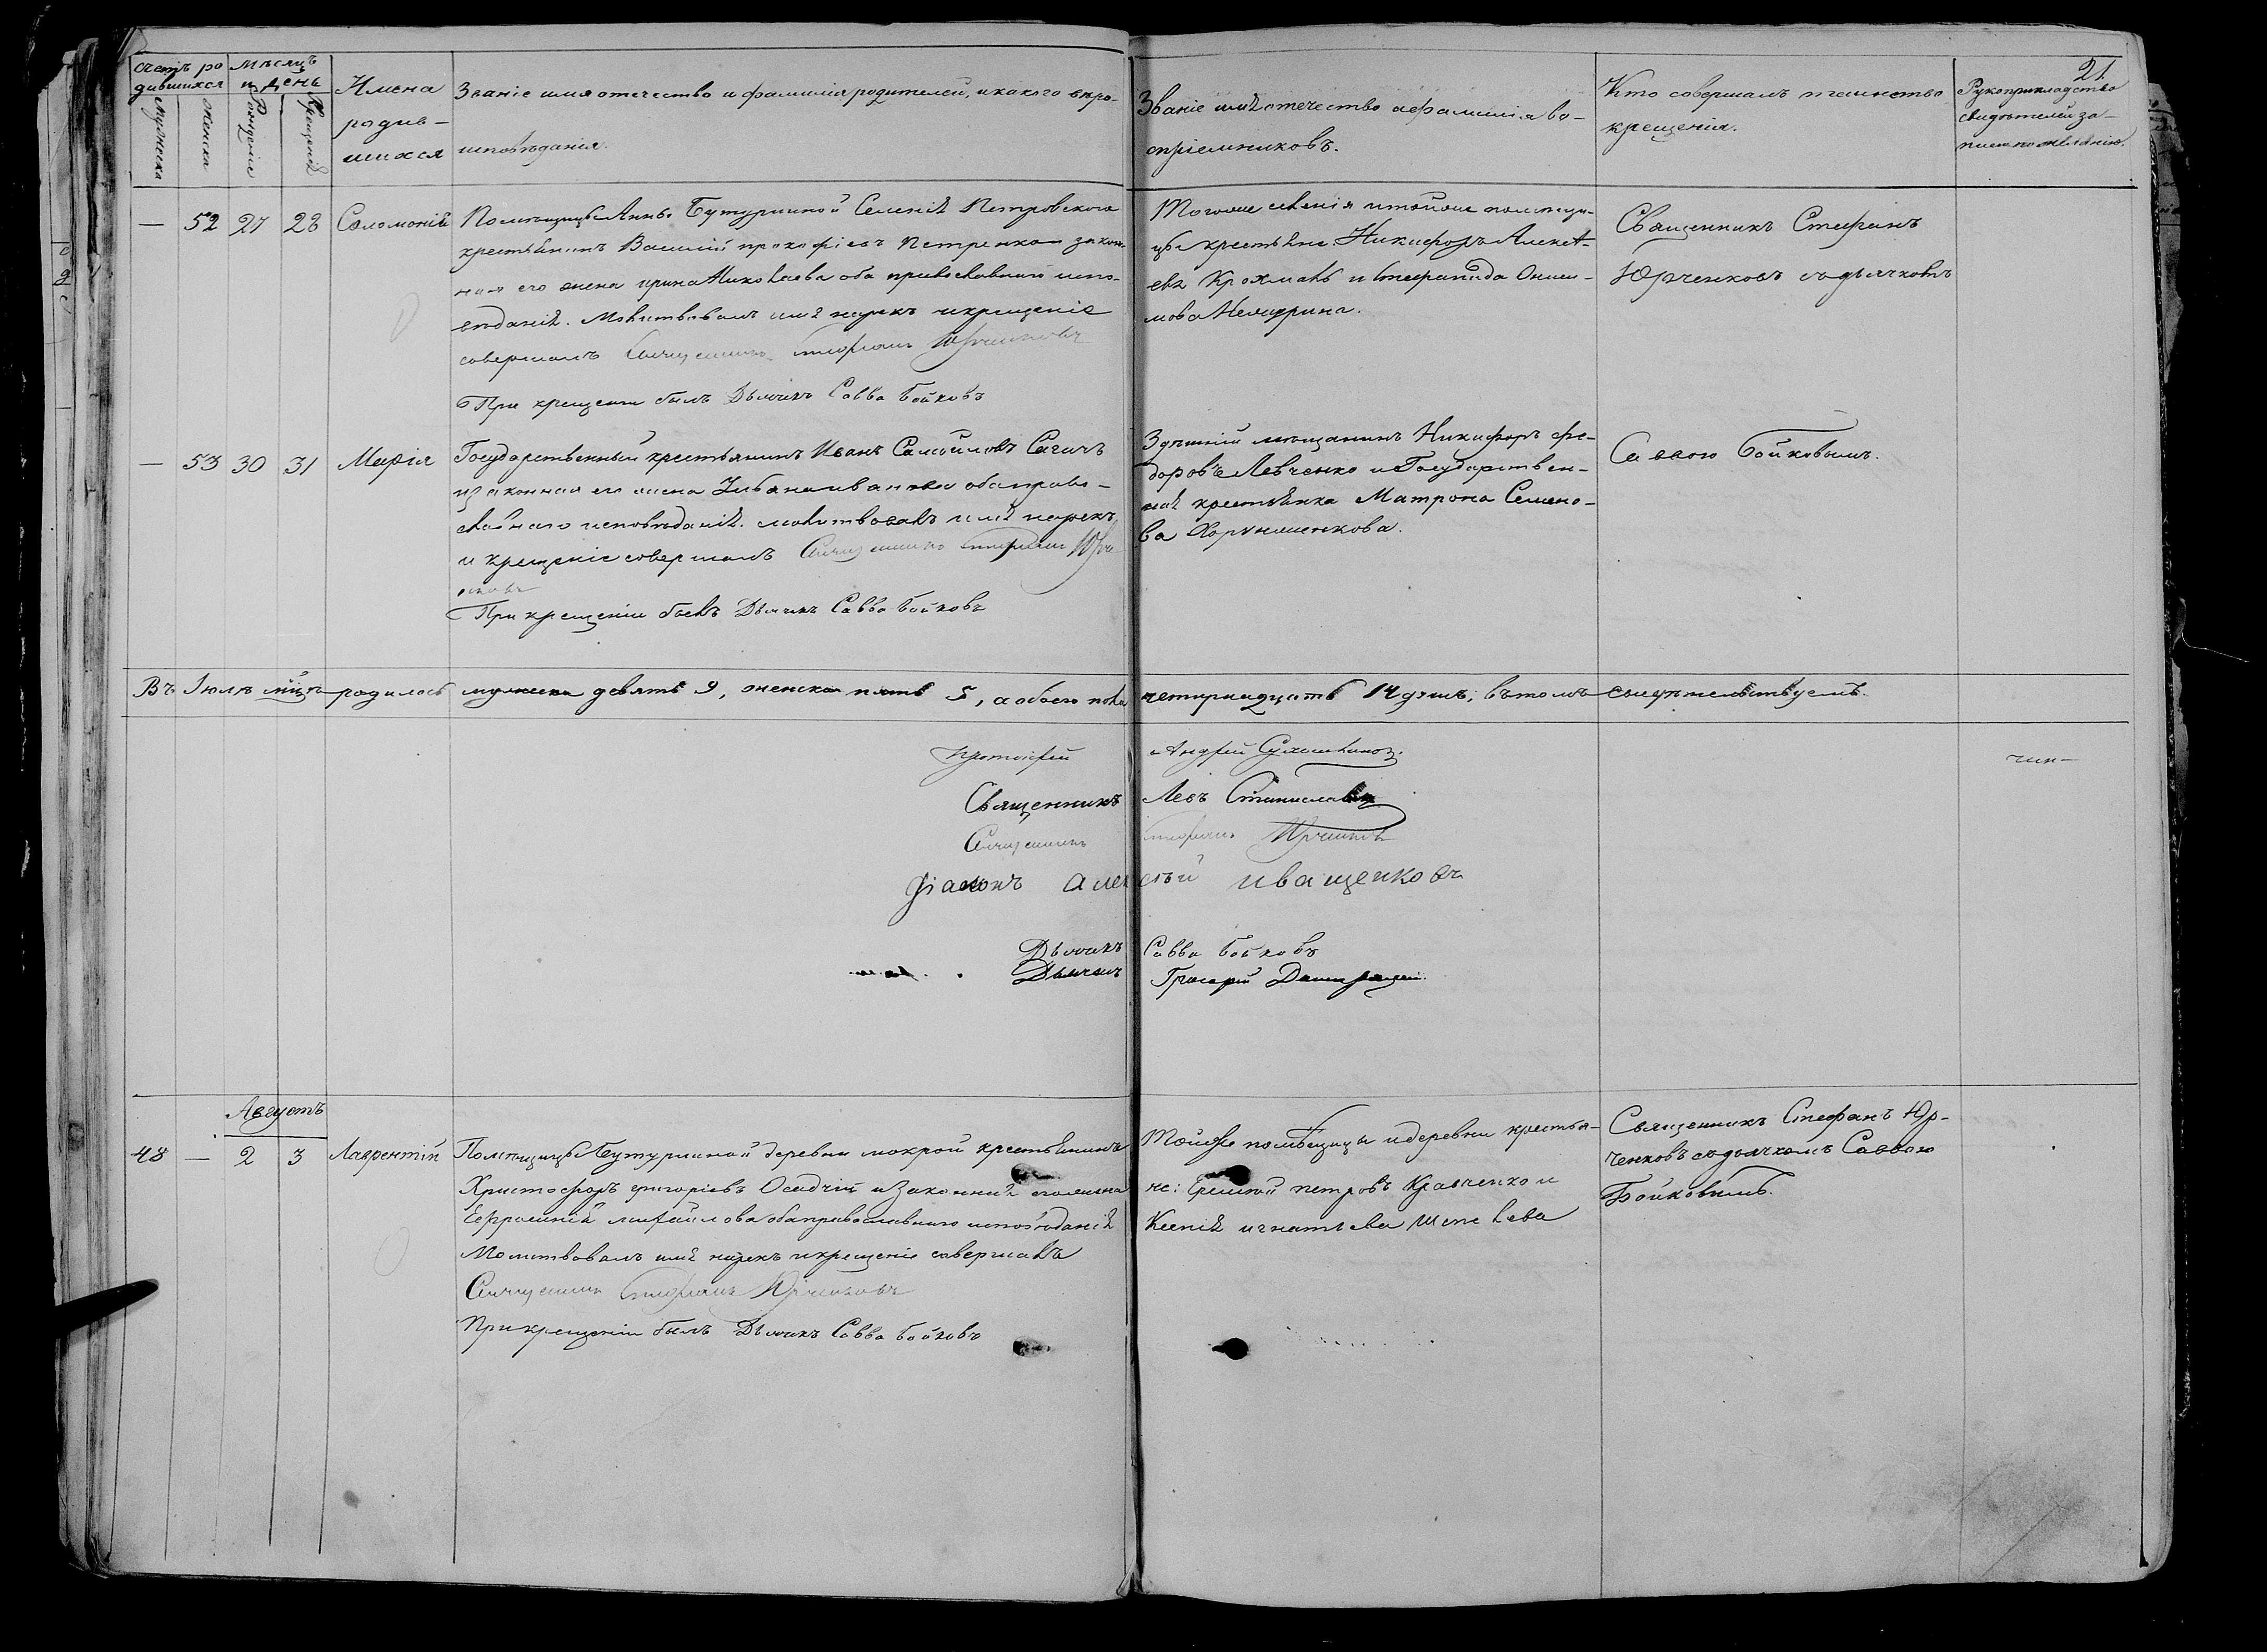 21.
Счетъ ро
дившихся
Мужеска
Женска
Мѣсяцъ
и День
Рожденія
Крещенія
Имена
родив-
шихся
Званіе имя отечество и фамилія родителей, и какого вѣро-
исповѣданія.
Званіе имя отечество и фамилія во-
спріемниковъ.
Кто совершалъ таинство
крещенія.
Рукоприкладство
свидѣтелей за-
писи по желанію.
— 52 27 28 Соломонія
Помѣщицы Анны Бутурлиной Селенія Петровского
крестьянинъ Василій Прокофіевъ Петренко и закон-
ная его жена Ирина Николаева оба православнаго испо-
вѣданія. Молитвовалъ имя нарекъ и крещеніе
совершалъ Священникъ Стефанъ Юрченковъ
При крещеніи былъ Дьячикъ Савва Бойковъ
Тогоже селенія и тойже помѣщи-
цы крестьяне: Никифоръ Алексѣ-
евъ Крохмаль и Стефанида Ониси-
мова
Священникъ Стефанъ
Юрченковъ съ дьячкомъ
— 53 30 31 Марія
Государственный крестьянинъ Иванъ Самойловъ Сагачъ
и законная его жена Ульяна Иванова оба право-
славнаго исповѣданія. молитвовалъ имя нарекъ
и крещеніе совершалъ Священникъ Стефанъ Юрч
енковъ
При крещеніи былъ Дьячикъ Савва Бойковъ
Здѣшній мѣщанинъ Никифоръ Фе-
доровъ Левченко и Государствен-
ная крестьянка Матрона Семено-
ва Хорунженкова.
Саввою Бойковымъ.
Въ Іюлѣ мцѣ родилось мужеска девять 9, женска пять 5, а обоего пола четырнадцать 14 душъ; въ томъ свидѣтельствуемъ.
Протоіерей Андрей
чин-
Священникъ Левъ Станиславскій
Священникъ Стефанъ Юрченковъ
Діаконъ Алексѣй Иващенковъ
Дьячикъ Савва Бойковъ
Дьячикъ Григорій
Августъ
48 — 2 3 Лаврентій
Помѣщицы Бутурлиной деревни мокрой крестьянинъ
Христофоръ Григоріевъ Осадчій и законная его жена
Евфросинія Михайлова оба православнаго исповѣданія
Молитвовалъ имя нарекъ и крещеніе совершалъ
Священникъ Стефанъ Юрченковъ
При крещеніи былъ Дьячикъ Савва Бойковъ
Тойже помѣщицы и деревни крестья-
не: Еремѣй Петровъ Кравченко и
Ксенія Игнатьева Шепелева
Священникъ Стефанъ Юр-
ченковъ съ дьячкомъ Саввою
Бойковымъ.